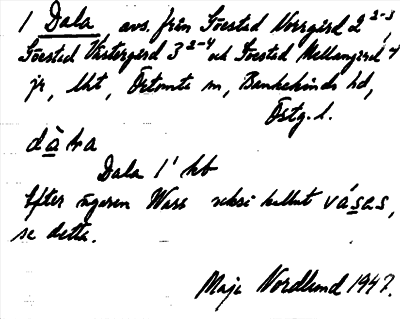 1 Dala, avs. från Torestad Norrgård 2 2-3,
Torestad Västergård 3 2-4 och Torestad Mellangård 4
jr, lht, Örtomta sn, Bankekinds hd,
Östg. l.
dà̱ɫa
Dala 1' kb
Efter ägaren Wass också kallat vá̱sas,
se detta.
Maja Nordlund 1947.